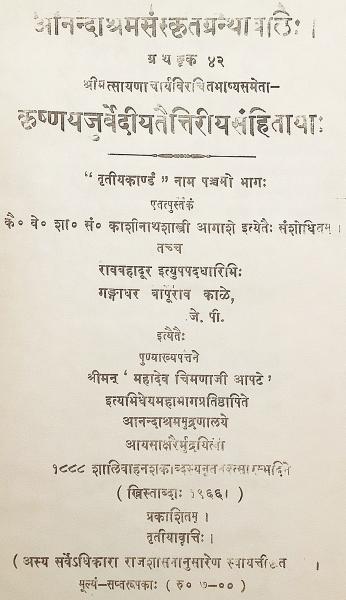 आनन्दाश्रमसंस्कृतग्रन्थावलिः ।
ग्रन्थाङ्कः ४२
श्रीमत्सायणाचार्यविरचितभाष्यसमेता–
कृष्णयजुर्वेदीयतैत्तिरीयसंहितायाः
“ तृतीयकाण्डं” नाम पञ्चमो भागः
एतत्पुस्तकं
कै० वे० शा० सं० काशीनाथशास्त्री आगाशे इत्येतैः संशोधितम् ।
तच्च
रावबहादूर इत्युपपदधारिभिः
गङ्गाधर बापूराव काळे,
जे. पी.
इत्येतैः
पुण्याख्यपत्तने
श्रीमन् ‘ महादेव चिमणाजी आपटे ’
इत्यभिधेयमहाभागप्रतिष्ठापिते
आनन्दाश्रममुद्रणालये
आयसाक्षरैर्मुद्रयित्वा
१८८८ शालिवाहनशकाब्दस्य
( ख्रिस्ताब्दाः १९६६। )
प्रकाशितम् ।
तृतीयावृत्तिः ।
( अस्य सर्वेऽधिकारा राजशासनानुसारेण स्वायत्तीकृत
मूल्यं–सप्तरूपकाः ( रु० ७–०० )